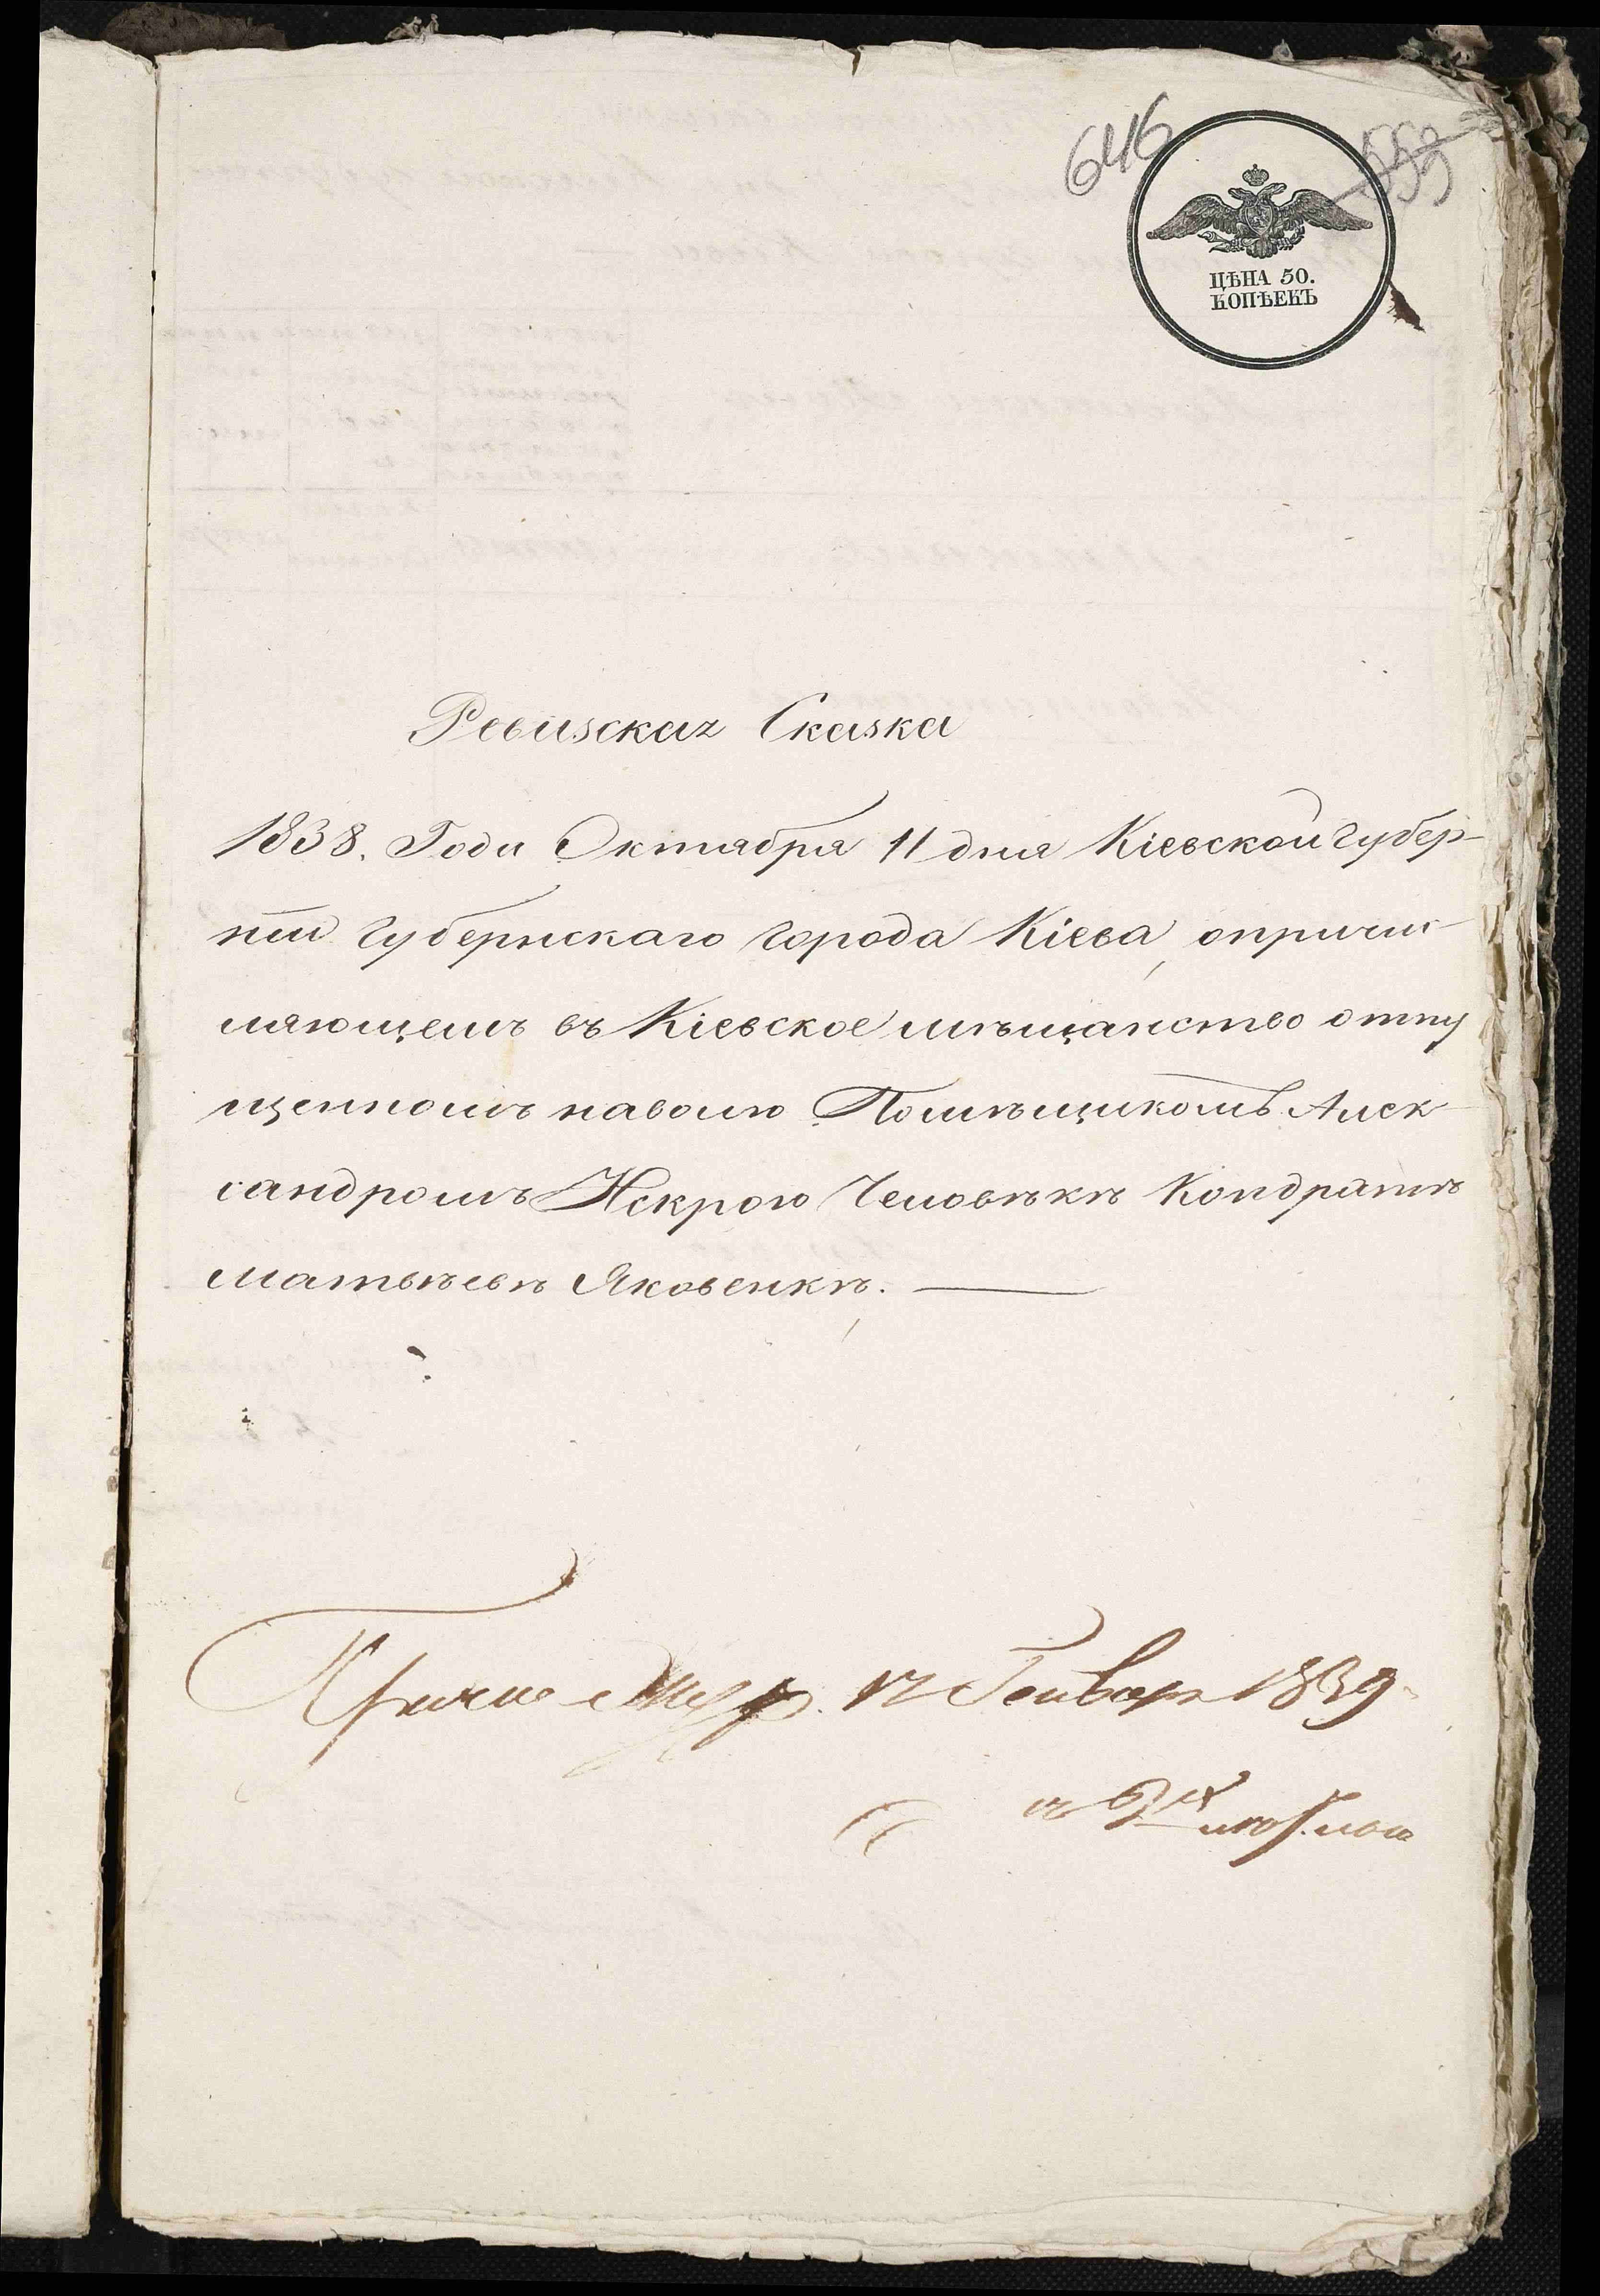 646
559
ЦѢНА 50.
КОПѢЕКЪ
Ревизская Сказка
1838. Года Октября 11 дня Кіевской Губер-
ніи Губернскаго города Кіева, опричи-
сляющемъ въ Кіевское мѣщанство отпу
щенномъ наволю Помѣщикомъ Алек
сандромъ Искрою Человѣкѣ Кондратѣ
Матвѣевѣ Яковенкѣ.
12 Генвар 1839